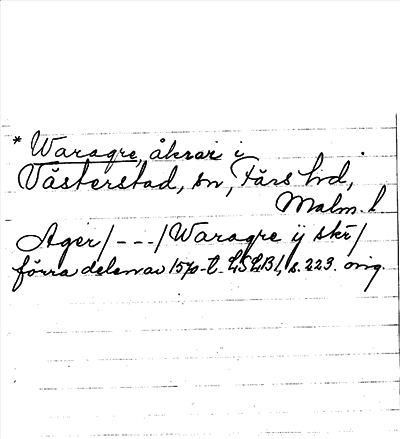 * Waragre, åkrar i
Västerstad, sn, Färs hd,
Malm. l
Ager /---/ Waragre ij skr/
förra delen av 1570-t. LSLB1, s. 223. orig.